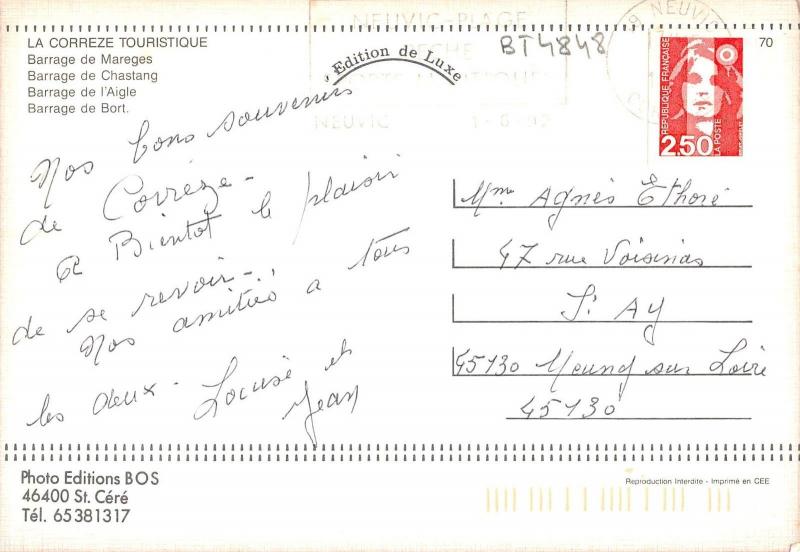 LA CORREZE TOURISTIQUE
Barrage de Mareges
Barrage de Chastang
Barrage de l'Aigle
Barrage de Bort.
Edition de Luxe
NEUVIC-PLAGE
NEUVIC
BT4848
NEUVIC
70
REPUBLIQUE FRANÇAISE
2,50
LA POSTE
Nos bons souvenirs
de Corrèze -
A Bientot le plaisir
de se revoir -
Nos amitiés a tous
les deux - 
et
Jean
Mme Agnès Ethoré
47 rue Voisinas
St Ay
45130 Meung sur Loire
45130
Photo Editions BOS
46400 St. Céré
Tél. 65381317
Reproduction Interdite - Imprimé en CEE